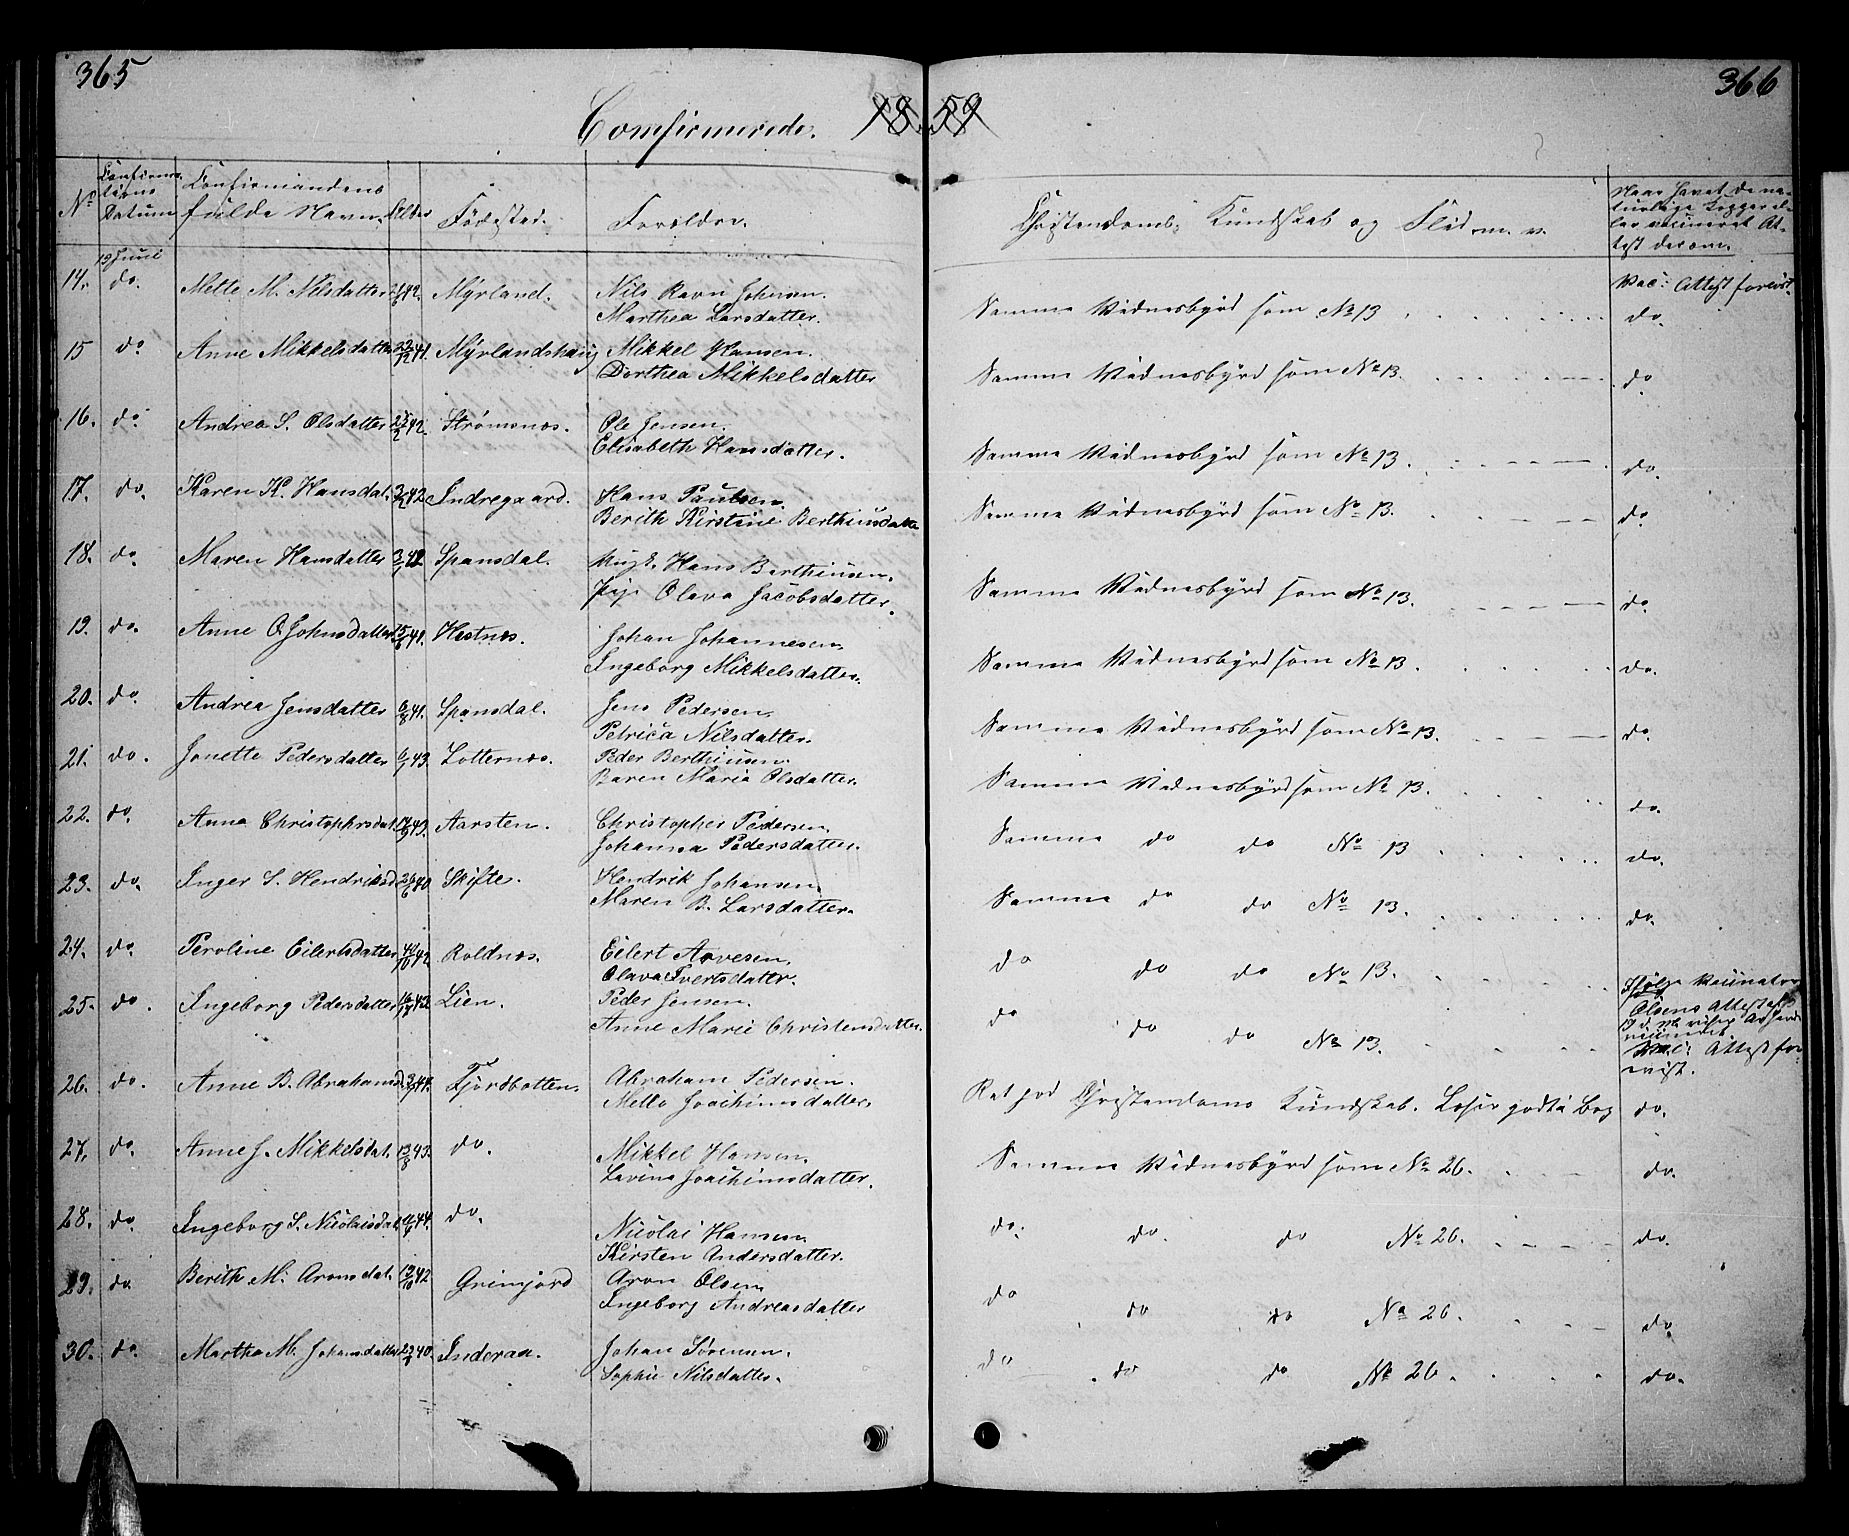 365
366
Comfirmerede. 18 59
No Confirma-tions Datum Confirmandens fulde Navn. Alder Födested. Forældre. Christendoms Kundskab og Flid m. v. Naar havt de na-turlige Kopper el-ler vaccineret At-test derom.
19 Juni
14. do. Mette M. Nilsdatter 42. Myrland. Nils Ravn Johnsen. Marthea Larsdatter. Samme Vidnesbyrd som No 13 Vac: Attest foreviist. do.
15 do Anne Mikkelsdatter 22/12 41. Myrlandshaug Mikkel Hansen. Dorthea Mikkelsdatter Samme Vidnesbyrd som No 13. do
16. do. Andrea S. Olsdatter 42. Strømsnæs. Ole Jensen. Elisabeth Hansdatter. Samme Vidnesbyrd som No 13. do.
17. do. Karen K. Hansdat. 42 Indregaard. Hans Paulsen. Berith Kirstine Berthiusdatter Samme Vidnesbyrd som No 13. do.
18. do. Maren Hansdatter 42. Spansdal. Ungk. Hans Berthiusen. Pige Olava Jacobsdatter. Samme Vidnesbyrd som No 13. do.
19. do. Anne O. Johnsdatter 41. Hestnæs. Johan Johannesen. Ingeborg Mikkelsdatter. Samme Vidnesbyrd som No 13. do.
20. do Andrea Jensdatter 6/8 41. Spansdal. Jens Pedersen. Petrica Nilsdatter. Samme Vidnesbyrd som No 13. do.
21. do. Jonette Pedersdatter 6/1 43. Lotternæs. Peder Berthiusen. Baren Maria Olsdatter. Samme Vidnesbyrd som No 13. do.
22. do. Anna Christophersdat. 43. Aarsten. Christopher Pedersen. Johanna Pedersdatter. Samme do do No 13 do.
23. do. Inger S. Hendriksd. 40 Skifte. Hendrik Johansen. Maren B. Larsdatter. Samme do do No 13. do.
24. do. Peroline Eilertsdatter 42. Roldnæs. Eilert Arvesen. Olava Ivertsdatter. do do do No 13.
25. do. Ingeborg Pedersdatter 43. Lien. Peder Jensen. Anne Marie Christensdatter. do do do No 13. Ifølge Vaccinatør Olsens Attest af
26. do. Anne B. Abrahamsd. 44. Fjordbotten. Abraham Pedersen. Mette Joachimsdatter. Ret god Christendoms Kundskab. Læser godt i Bog Vac: Attest fore-vist. do.
27. do. Anne J. Mikkelsdat. 13/8 43. do. Mikkel Hansen. Lavina Joachimsdatter. Samme Vidnesbyrd som No 26. do.
28. do. Ingeborg S. Nicolaisdat. 44. do. Nicolai Hansen. Kirsten Andersdatter. do. do. do No 26. do.
29. do Berith M. Aronsdat. 19/10 42 Grimjord Aron Olsen. Ingeborg Andreasdatter do do do No 26. do.
30. do. Martha M. Johansdatter 40. Inderaa. Johan Sörensen. Sophie Nilsdatter. do do do No 26. do.